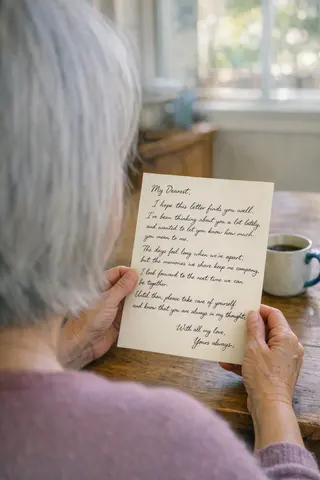 My Dearest,
I hope this letter finds you well.
I've been thinking about you a lot lately,
and wanted to let you know how much
you mean to me.
The days feel long when we're apart,
but the memories we share keep me company.
I look forward to the next time we can
be together.
Until then, please take care of yourself
and know that you are always in my thoughts.
With all my love,
Yours always,